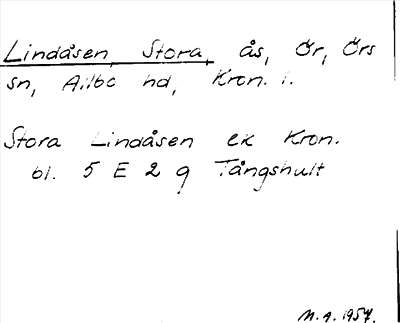 Lindåsen, Stora, ås, Ör, Örs
sn, Allbo hd, Kron. l.
Stora Lindåsen ek Kron.
bl. 5 E 2 g Tångshult
M. A. 1957.